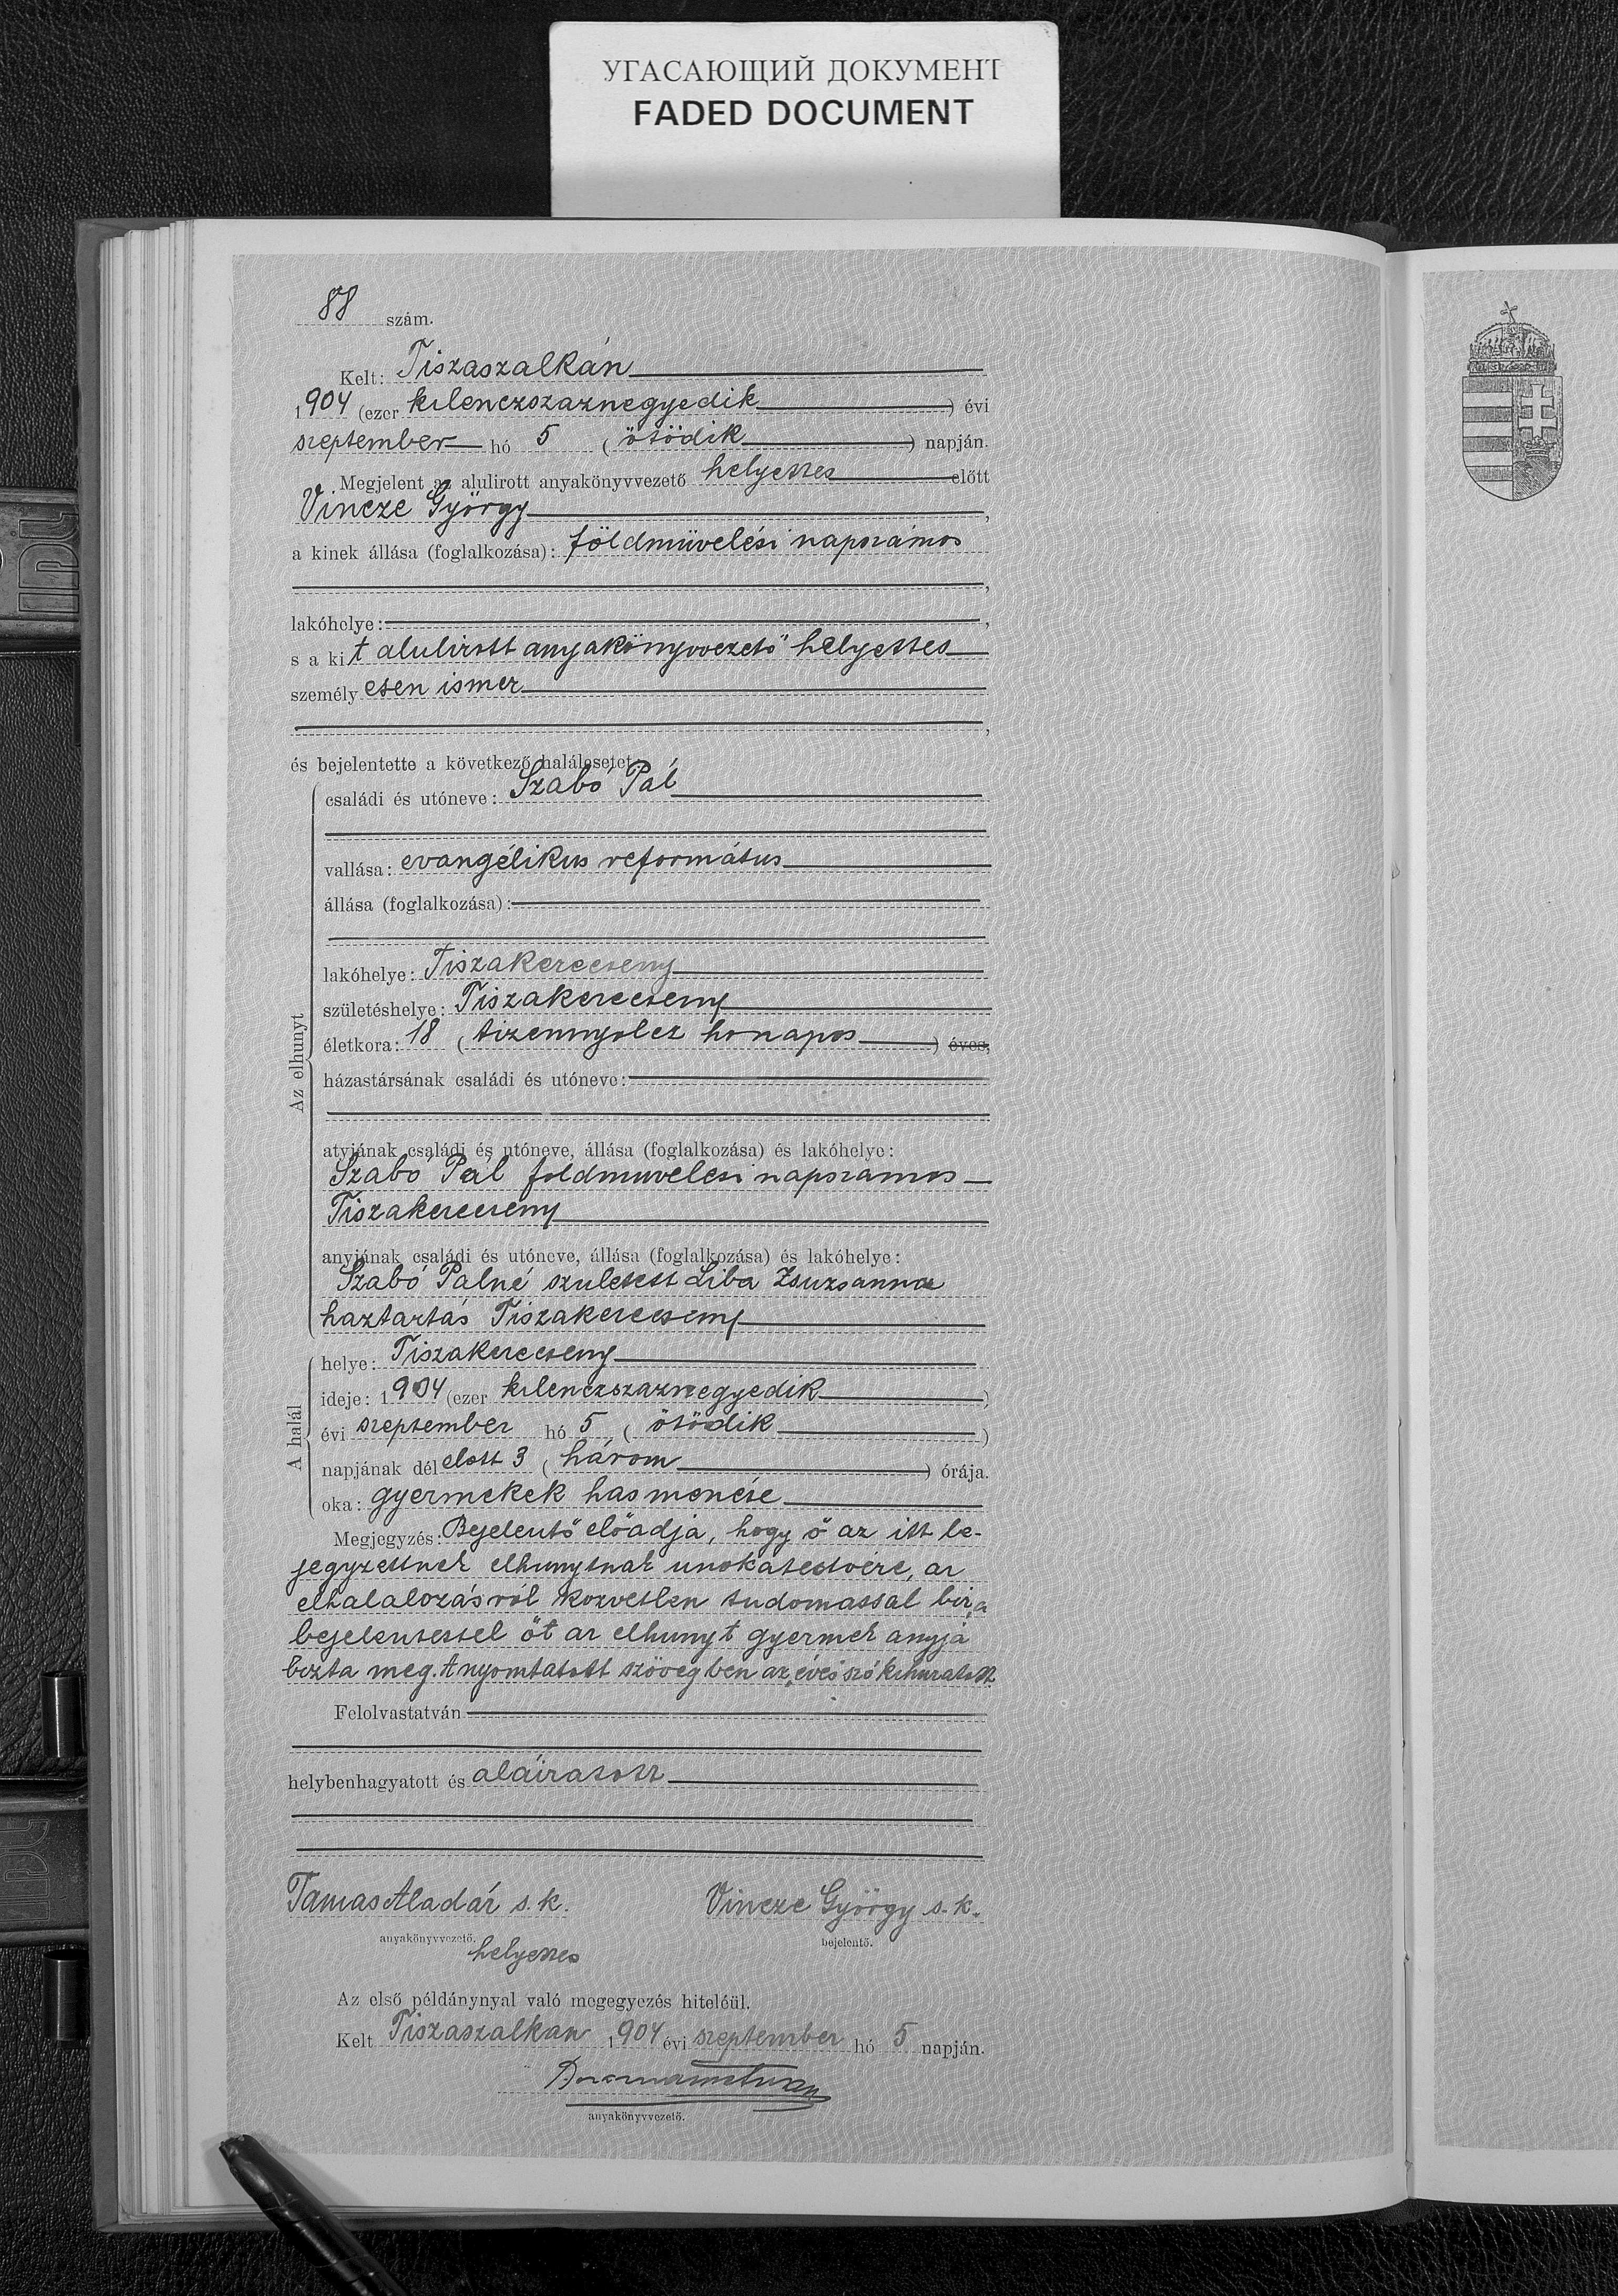 УГАСАЮЩИЙ ДОКУМЕНТ
FADED DOCUMENT
88 szám.
Kelt: Tiszaszalkán
1904 (ezer kilenczszaznegyedik) évi
szeptember hó 5 (ötödik) napján.
Megjelent az alulirott anyakönyvvezető helyettes előtt
Vincze György,
a kinek állása (foglalkozása): földmüvelési napszámos
,
lakóhelye: ,
s a kit alulirott anyakönyvvezető helyettes
személyesen ismer
,
és bejelentette a következő halálesetet:
Az elhunyt
családi és utóneve: Szabó Pál
vallása: evangélikus református
állása (foglalkozása):
lakóhelye: Tiszakerecseny
születéshelye: Tiszakerecseny
életkora: 18 (tizennyolcz honapos) éves,
házastársának családi és utóneve:
atyjának családi és utóneve, állása (foglalkozása) és lakóhelye:
Szabó Pál foldmuvelesi napszamos
Tiszakerecseny
anyjának családi és utóneve, állása (foglalkozása) és lakóhelye:
Szabó Palné szuletett Liba Zsuzsanna
haztartás Tiszakerecseny
A halál
helye: Tiszakerecseny
ideje: 1904 (ezer kilenczszaznegyedik)
évi szeptember hó 5 (ötödik)
napjának délelott 3 (három) órája.
oka: gyermekek hasmenése
Megjegyzés: Bejelentő előadja, hogy ő az itt le-
jegyzettnek elhunytnak unokatestvére, az
elhalalozásról kozvetlen tudomassal bir, a
bejelentessel őt az elhunyt gyermek anyja
bizta meg. A nyomtatott szövegben az „éves" szó kihuzatott.
Felolvastatván
helybenhagyatott és aláiratott
Tamas Aladár s. k.
Vincze György s. k.
anyakönyvvezető.
helyettes
bejelentő.
Az első példánynyal való megegyezés hiteléül.
Kelt Tiszaszalkan 1904 évi szeptember hó 5 napján.
anyakönyvvezető.